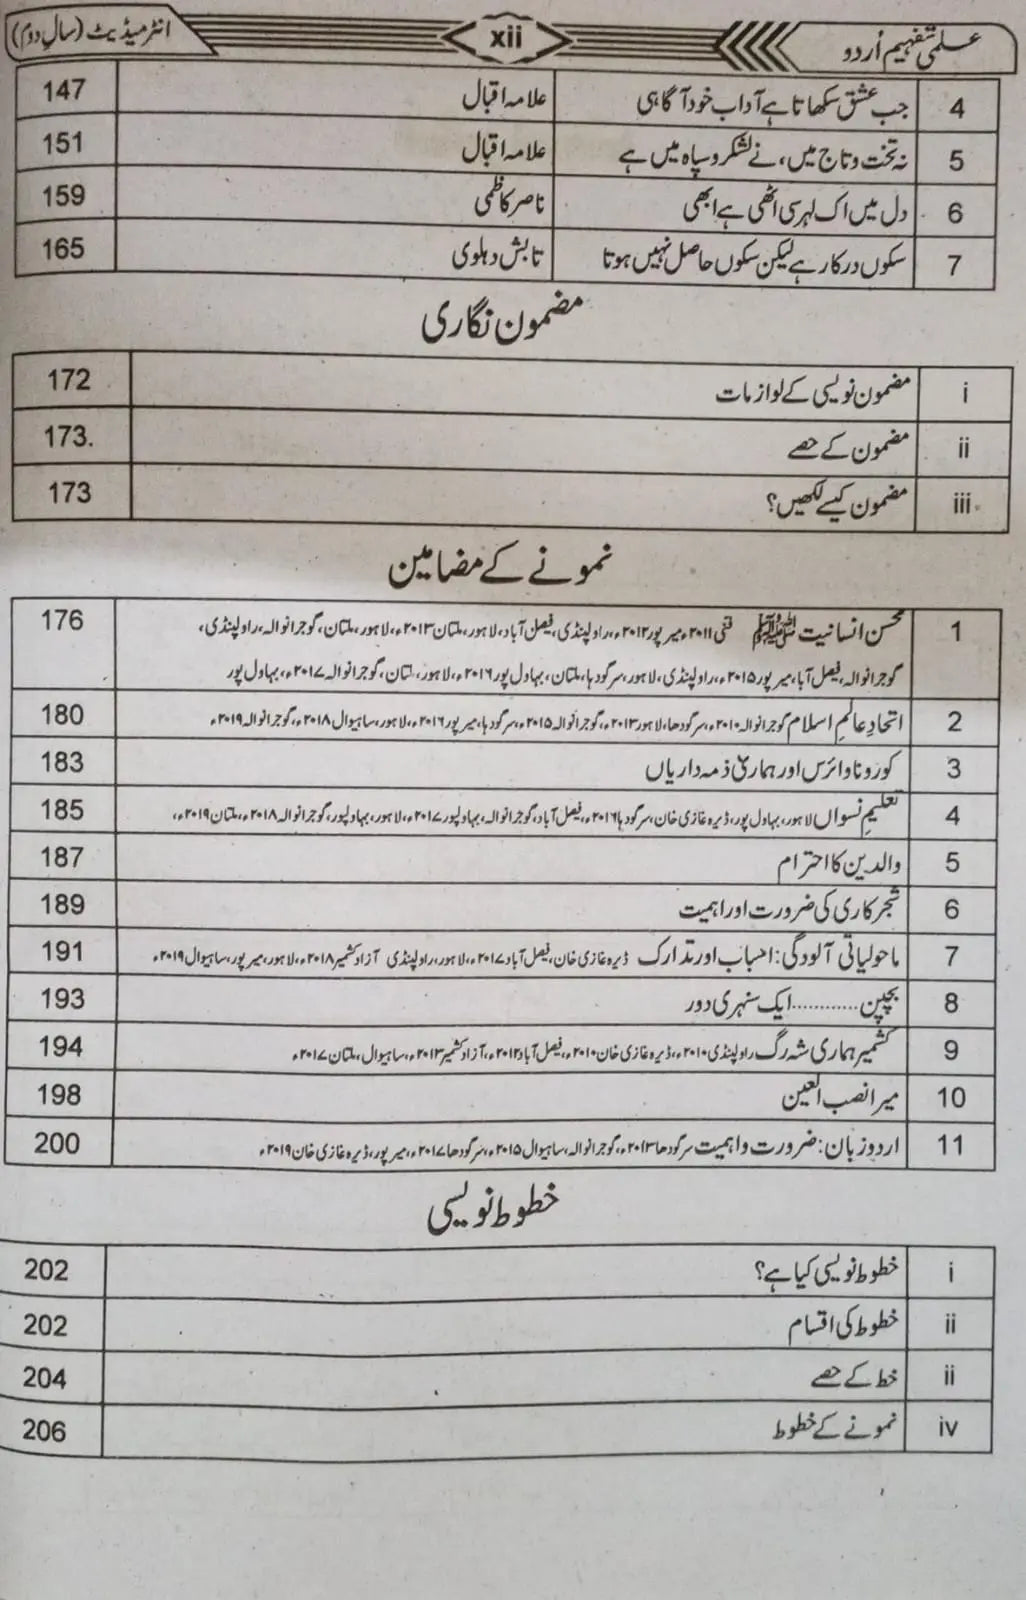 علمی تفہیم اُردو xii انٹرمیڈیٹ (سالِ دوم)
4 جب عشق سکھاتا ہے آداب خود آگاہی علامہ اقبال 147
5 نہ تخت و تاج میں، نے لشکر و سپاہ میں ہے علامہ اقبال 151
6 دل میں اک لہر سی اٹھی ہے ابھی ناصر کاظمی 159
7 سکوں درکار ہے لیکن سکوں حاصل نہیں ہوتا تابش دہلوی 165
مضمون نگاری
i مضمون نویسی کے لوازمات 172
ii مضمون کے حصے 173.
iii مضمون کیسے لکھیں؟ 173
نمونے کے مضامین
1 محسن انسانیت ﷺ ۲۰۱۱ء، میر پور ۲۰۱۲ء، راولپنڈی، فیصل آباد، لاہور، ملتان ۲۰۱۳ء، لاہور، ملتان، گوجرانوالہ، راولپنڈی، 176
گوجرانوالہ، فیصل آبا، میر پور ۲۰۱۵ء، راولپنڈی، لاہور، سرگودہا، ملتان، بہاول پور ۲۰۱۶ء، لاہور، ملتان، گوجرانوالہ ۲۰۱۷ء، بہاول پور
2 اتحادِ عالمِ اسلام گوجرانوالہ ۲۰۱۰ء، سرگودھا، لاہور ۲۰۱۳ء، گوجرانوالہ ۲۰۱۵ء، سرگودہا، میر پور ۲۰۱۶ء، لاہور، ساہیوال ۲۰۱۸ء، گوجرانوالہ ۲۰۱۹ء 180
3 کورونا وائرس اور ہماری ذمہ داریاں 183
4 تعلیمِ نسواں لاہور، بہاول پور، ڈیرہ غازی خان، سرگودہا ۲۰۱۶ء، فیصل آباد، گوجرانوالہ، بہاولپور ۲۰۱۷ء، لاہور، بہاولپور، گوجرانوالہ ۲۰۱۸ء، ملتان ۲۰۱۹ء، 185
5 والدین کا احترام 187
6 شجرکاری کی ضرورت اور اہمیت 189
7 ماحولیاتی آلودگی: اسباب اور تدارک ڈیرہ غازی خان، فیصل آباد ۲۰۱۷ء، لاہور، راولپنڈی آزاد کشمیر ۲۰۱۸ء، لاہور، میر پور، ساہیوال ۲۰۱۹ء 191
8 بچپن............ایک سنہری دور 193
9 کشمیر ہماری شہ رگ راولپنڈی ۲۰۱۰ء، ڈیرہ غازی خان ۲۰۱۰ء، فیصل آباد ۲۰۱۲ء، آزاد کشمیر ۲۰۱۳ء، ساہیوال، ملتان ۲۰۱۷ء 194
10 میرا نصب العین 198
11 اردو زبان: ضرورت و اہمیت سرگودھا ۲۰۱۳ء، گوجرانوالہ، ساہیوال ۲۰۱۵ء، سرگودھا ۲۰۱۷ء، میر پور، ڈیرہ غازی خان ۲۰۱۹ء 200
خطوط نویسی
i خطوط نویسی کیا ہے؟ 202
ii خطوط کی اقسام 202
ii خط کے حصے 204
iv نمونے کے خطوط 206